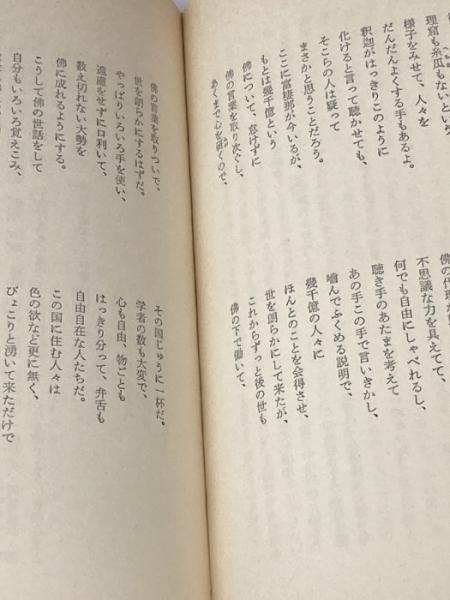 理窟も糸瓜もないという
様子をみせて、人々を
だんだんよくする手もあるよ。
釈迦がはっきりこのように
化けると言って聴かせても、
そこらの人は疑って
まさかと思うことだろう。
ここに富楼那が今いるが、
もとは幾千億という
佛について、怠けずに
佛の言葉を取り次ぐし、
あくまで心を研くので、
佛の代理
不思議な力を具えてて、
何でも自由にしゃべれるし、
聴き手のあたまを考えて
あの手この手で言いきかし、
噛んでふくめる説明で、
幾千億の人々に
ほんとのことを会得させ、
世を朗らかにして来たが、
これからずっと後の世も
佛の下で働いて、
佛の言葉を取りついで、
世を朗らかにするはずだ。
やっぱりいろいろ手を使い、
遠慮をせずに口利いて、
数え切れない大勢を
佛に成れるようにする。
こうして佛の世話をして
自分もいろいろ覚えこみ、
その国じゅうに一杯だ。
学者の数も大変で、
心も自由、物ごとも
はっきり分って、弁舌も
自由自在な人たちだ。
この国に住む人々は
色の欲など更に無く、
ぴょこりと湧いて来ただけで